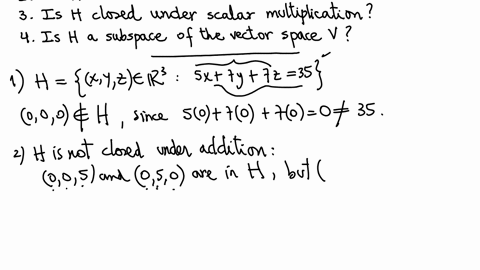 3. Is H closed under scalar multiplication?
4. Is H a subspace of the vector space V?
1) H = {(x,y,z) ∈ ℝ³ : 5x+7y+7z=35} ✓
(0,0,0) ∉ H, since 5(0)+7(0)+7(0)=0≠35.
2) H is not closed under addition:
(0,0,5) and (0,5,0) are in H, but (